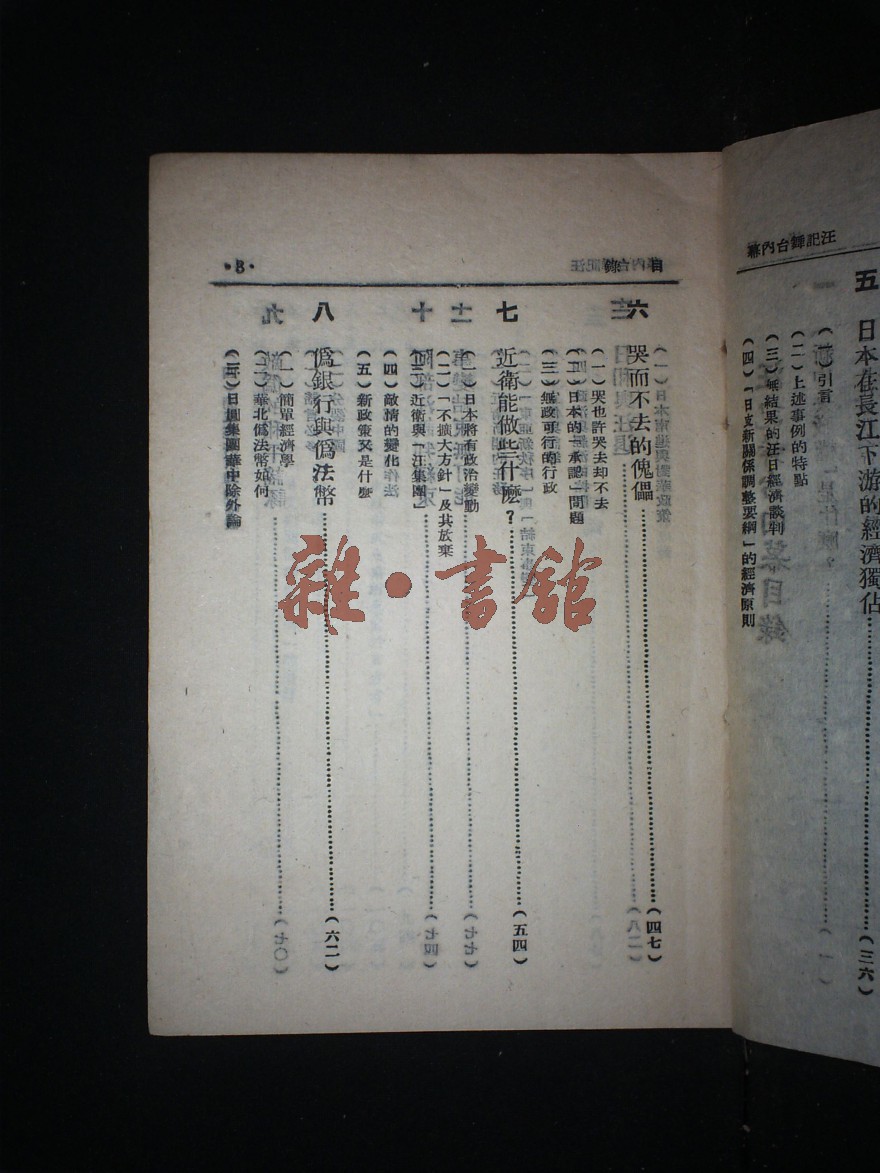 汪記舞台內幕
五 日本在長江下游的經濟獨佔……(三六)
(一)引言
(二)上述事例的特點
(三)無結果的汪日經濟談判
(四)「日支新關係調整要綱」的經濟原則
目錄 ·3·
六 哭而不去的傀儡……(四七)
(一)哭也許哭去却不去
(二)日本的「承認」問題
(三)無政可行的行政
七 近衛能做些什麽?……(五四)
(一)日本將有政治變動
(二)「不擴大方針」及其放棄
(三)近衛與「汪集團」
(四)敵情的變化作法
(五)新政策又是什麽
八 僞銀行與僞法幣……(六二)
(一)簡單經濟學
(二)華北僞法幣如何
(三)日圓集團華中除外論
雜·書館